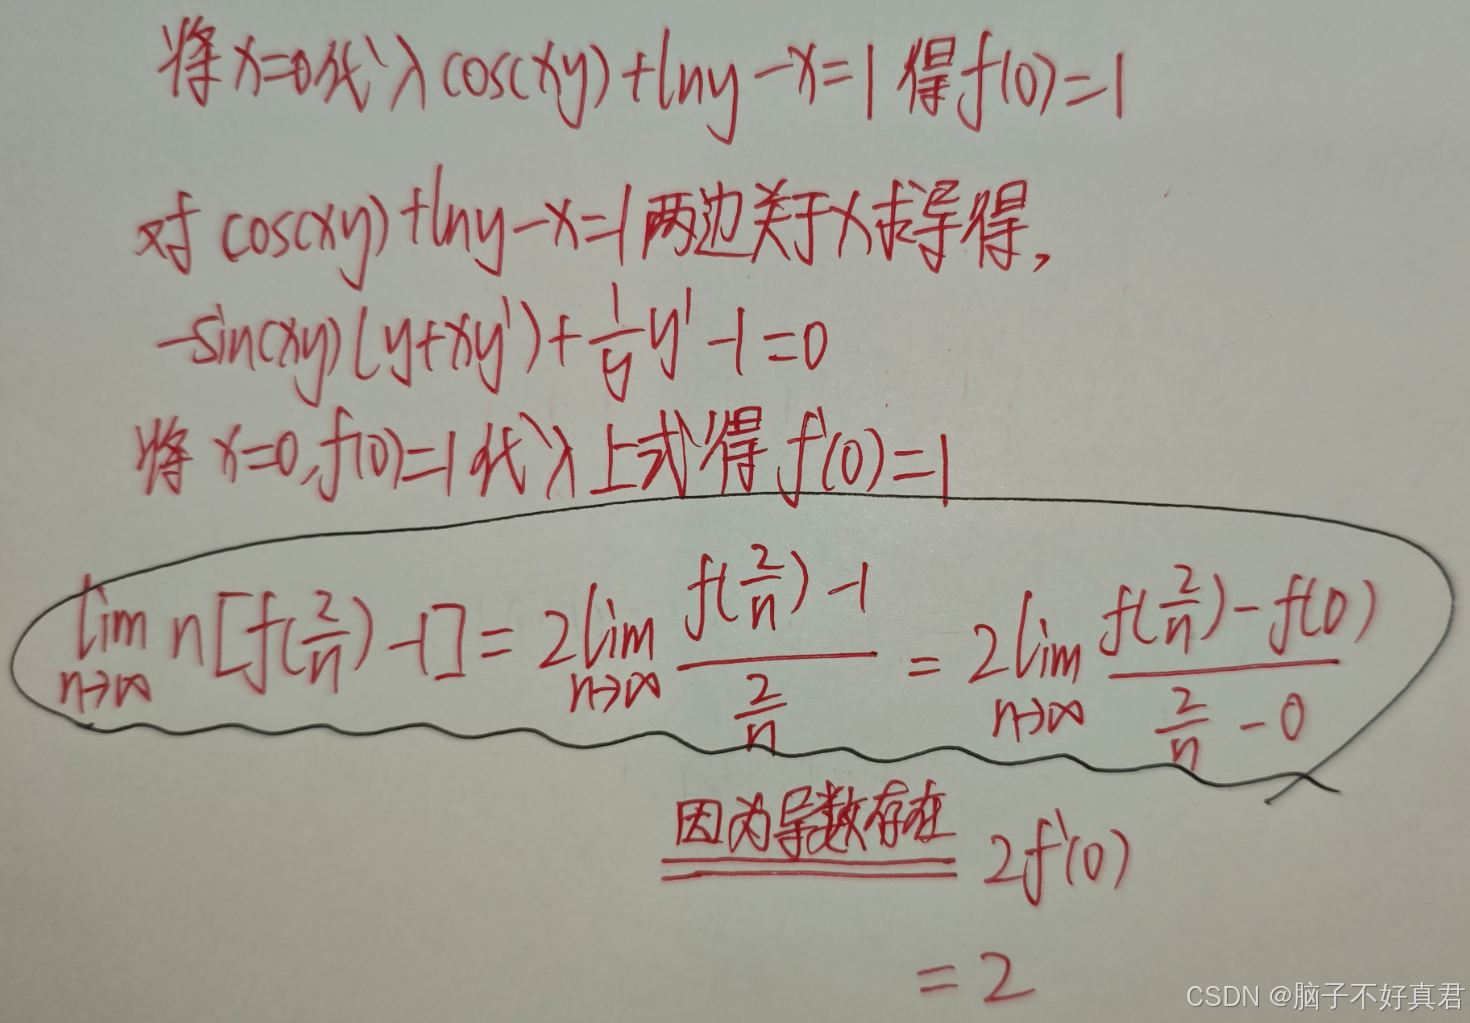 将x=0代入cos(xy)+lny-x=1得f(0)=1
对cos(xy)+lny-x=1两边关于x求导得,
-sin(xy)(y+xy')+\frac{1}{y}y'-1=0
将x=0,f(0)=1代入上式得f'(0)=1
\lim_{n→∞} n[f(\frac{2}{n})-1]=2\lim_{n→∞}\frac{f(\frac{2}{n})-1}{\frac{2}{n}}=2\lim_{n→∞}\frac{f(\frac{2}{n})-f(0)}{\frac{2}{n}-0}
因为导数存在 2f'(0)
=2
CSDN @脑子不好真君